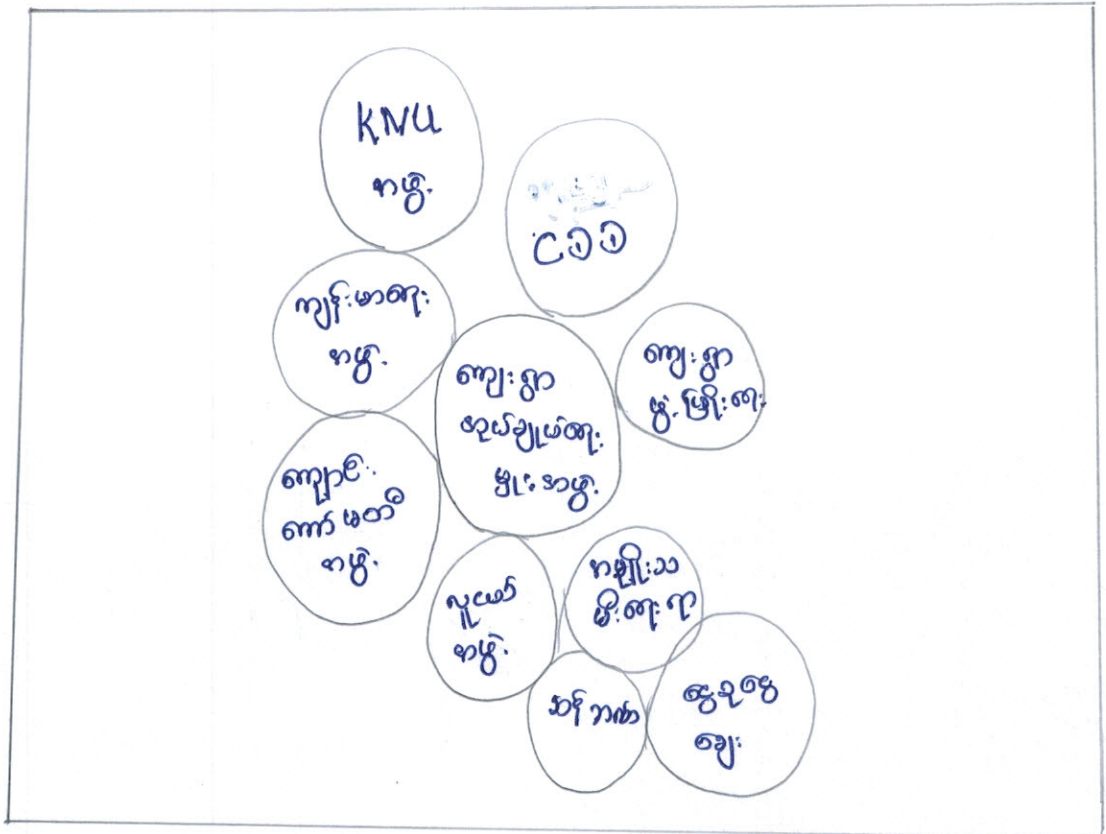 KNU
အဖွဲ့
CDD
ကျန်းမာရေး
အဖွဲ့
ကျေးရွာ
အုပ်ချုပ်ရေး
မှုးအဖွဲ့
ကျေးရွာ
ဖွံ့ဖြိုးရေး
ကျောင်း
ကော်မတီ
အဖွဲ့
လူငယ်
အဖွဲ့
အမျိုးသ
မီးရေးရာ
ဆန်ဘဏ်
ငွေစုငွေ
ချေး